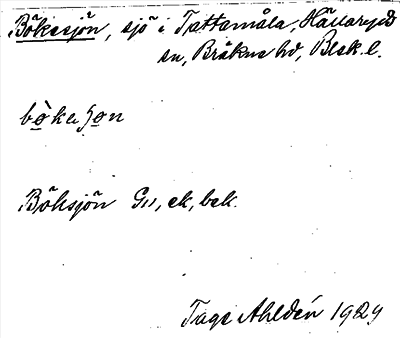 Bökesjön, sjö i Tattamåla, Hällaryd
sn, Bräkne hd, Blek. l.
bø̀kaʃøn
Böksjön G11, ek, bek.
Tage Ahldén 1929